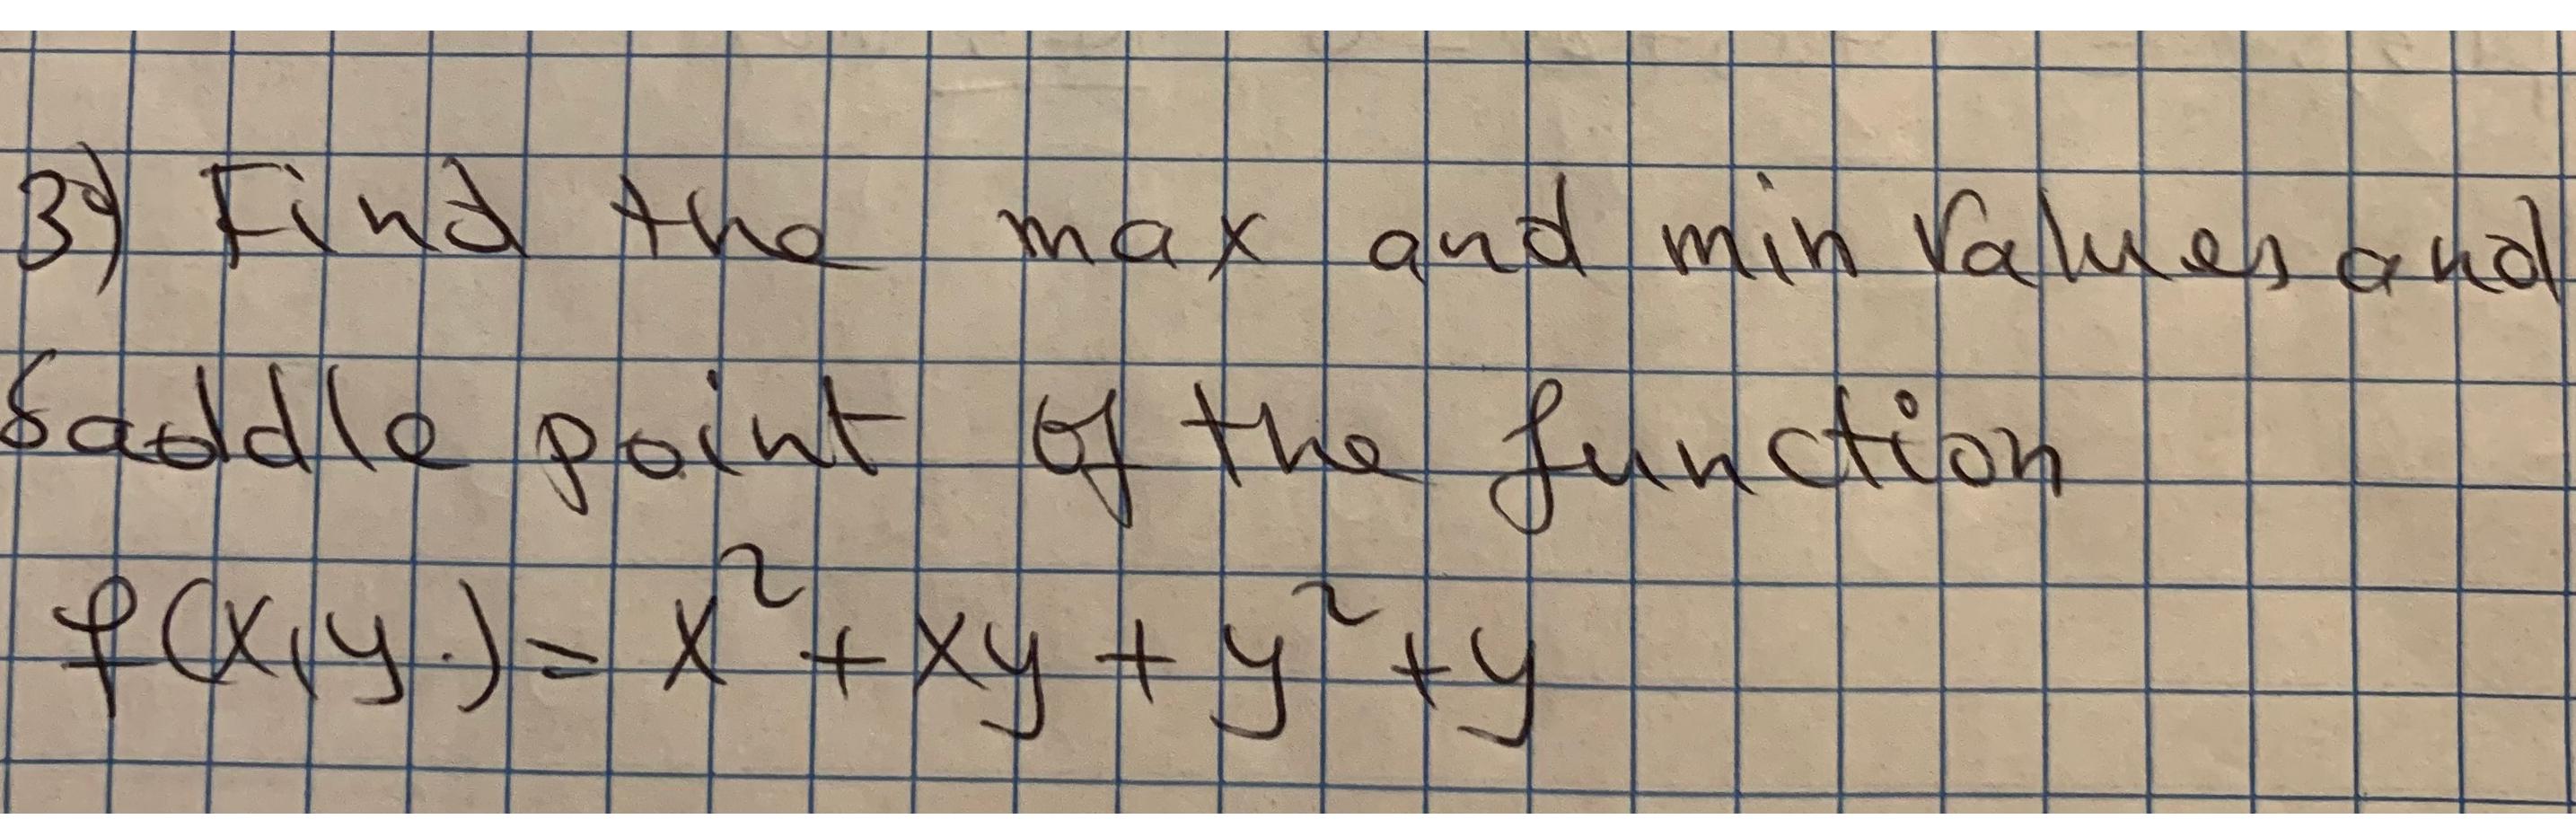 3) Find the max and min values and
saddle point of the function
f(x,y.) = x² + xy + y² + y